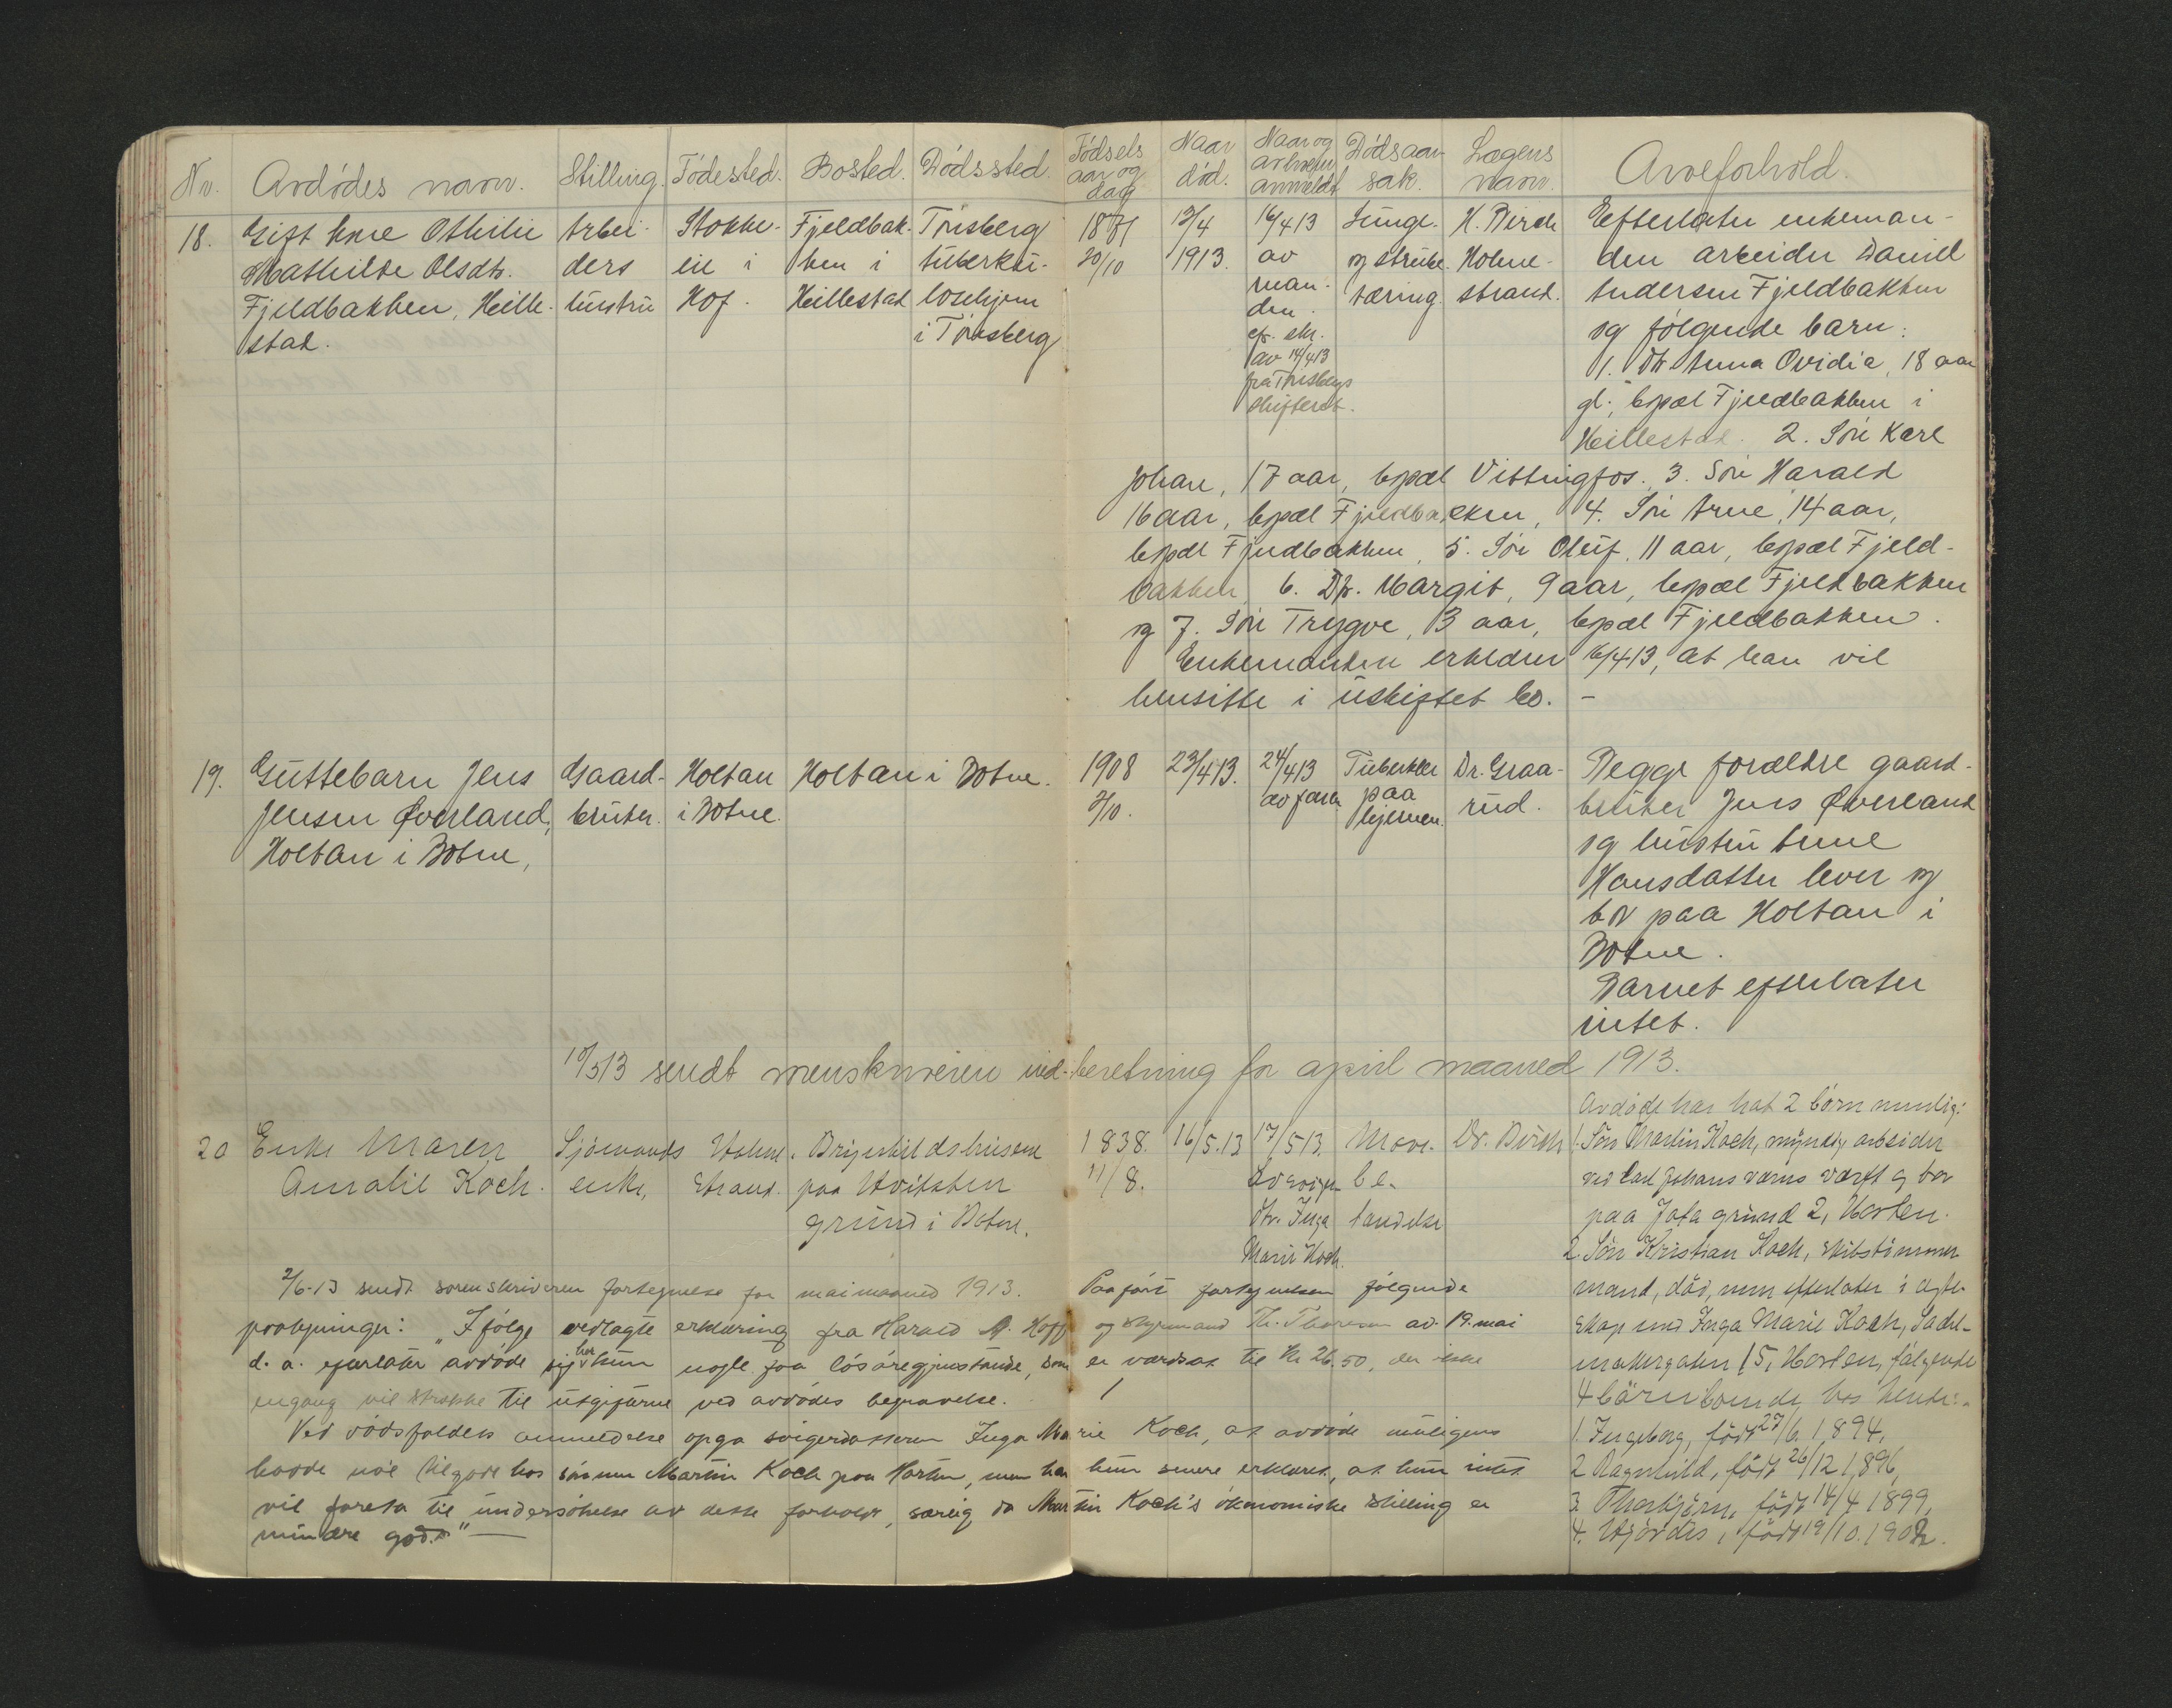 Nr. Avdødes navn. Stilling. Fødested. Bosted. Dødssted. Fødsels aar og dag Naar død. Naar og av hvem anmeldt Dødsaar- sak. Lægens navn. Arveforhold.
18. Gift kone Othilie
Mathilde Olsdtr.
Fjeldbakken, Heille-
stad.
Arbei-
ders
hustru
Stokke-
eie i
Hof.
Fjeldbak-
ken i
Heillestad
Tønsberg
tuberku-
losehjem
i Tønsberg
1871
20/10
12/4
1913.
16/4 13
av
man-
den.
cfr. skr.
av 14/4 13
fra Tønsbergs
skifteret.
Lunge-
og strube-
tæring.
H. Birch
Holme-
strand.
Efterlater enkeman-
den arbeider Daniel
Andersen Fjeldbakken
og følgende barn:
1. Dtr Anna Ovidia, 18 aar
gl., bopæl Fjeldbakken i
Heillestad. 2. Søn Karl
Johan, 17 aar, bopæl Vittingfos. 3. Søn Harald
16 aar, bopæl Fjeldbakken, 4. Søn Arne, 14 aar,
bopæl Fjeldbakken, 5. Søn Oluf, 11 aar, bopæl Fjeld-
bakken, 6. Dtr. Margit, 9 aar, bopæl Fjeldbakken
og 7. Søn Trygve, 3 aar, bopæl Fjeldbakken.
Enkemanden erklærer 16/4 13, at han vil
hensitte i uskiftet bo. -
19. Guttebarn Jens
Jensen Øverland,
Holtan i Botne,
Gaard-
bruker.
Holtan
i Botne.
Holtan i Botne.
1908
2/10.
23/4 13.
24/4 13
av faren
Tuberkler
paa
hjernen.
Dr. Graa-
rud.
Begge forældre gaard-
bruker Jens Øverland
og hustru Anne
Hansdatter lever og
bor paa Holtan i
Botne.
Barnet efterlater
intet.
10/5 13 sendt sorenskriveren ind-beretning for april maaned 1913.
20 Enke Maren
Amalie Koch.
Sjømands
enke,
Holme-
strand.
Brynhildshusene
paa Hvitsten
grund i Botne.
1838.
11/8.
16/5.13
17/5 13.
av sviger-
dtr. Inga
Marie Koch.
Mave-
be-
tændelse
Dr. Birch
Avdøde har hat 2 børn nemlig:
1. Søn Martin Koch, myndig arbeider
ved Carl Johans værns værft og bor
paa Jata grund 2, Horten.
2. Søn Kristian Koch, skibstømmer
mand, død, men efterlater i egte-
skap med Inga Marie Koch, Sadel-
makergaten 15, Horten, følgende
4 børn boende hos hende:
1. Ingeborg, født 27/6. 1894,
2 Ragnhild, født 26/12 1896,
3. Thorbjørn, født 14/4 1899,
4. Hjørdis, født 19/10. 1902.
2/6-13 sendt sorenskriveren fortegnelse for mai maaned 1913. Paaført fortegnelsen følgende
paategninger: "Ifølge vedlagte erklæring fra Harald M. Hoff og styrmand Th. Thoresen av 19. mai
d. a. efterlater avdøde sig her kun nogle faa løsøregjenstande, som er værdsat til Kr 26.50, der ikke
engang vil strække til utgifterne ved avdødes begravelse.
Ved dødsfaldets anmeldelse opga svigerdatteren Inga Marie Koch, at avdøde muligens
hadde noe tilgode hos sønnen Martin Koch paa Horten, men har hun senere erklæret, at hun intet
vil foreta til undersøkelse av dette forhold, særlig da Martin Koch's økonomiske stilling er
mindre god."